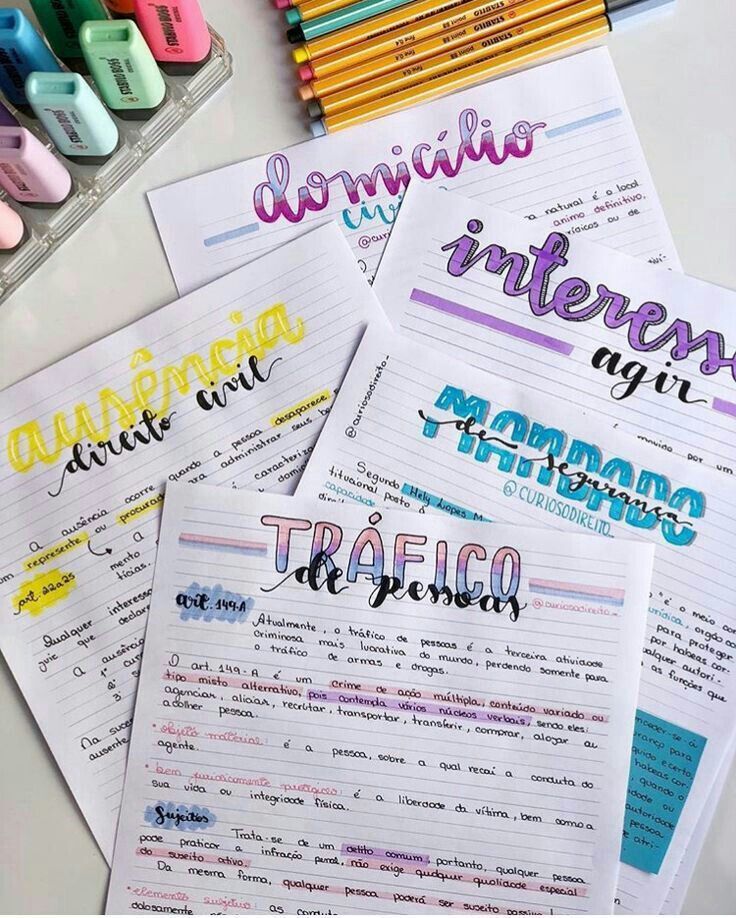 STABILO BOSS
STABILO BOSS
STABILO BOSS
STABILO point 88 fine 0.4
domicílio
civil
@curios
natural é o local
animo definitivo,
ou de
interesse
agir
movido por um
ausência
direito civil
A ausência ocorre quando a pessoa desaparece,
um represente ou procurador para administrar seus be
art. 22 a 25
mento
tícias.
caracteriz
Qualquer interess
juiz que declare
A ausência
1ª
2ª
3ª
Na suces
ausente
@curiosodireito_
MANDADO
de segurança
@CURIOSODIREITO_
Segundo Hely Lopes M
titucional posto à
capacidade
é o meio con
jurídica, orgão co
para proteger
por habeas cor
qualquer autori-
as funções que
conceder-se-á
rança para
quido e certo,
habeas cor
, quando o
dade ou
autoridade
pessoa
de atri-
TRÁFICO
de pessoas
@curiosodireito_
art. 149-A
Atualmente, o tráfico de pessoas é a terceira atividade
criminosa mais lucrativa do mundo, perdendo somente para
o tráfico de armas e drogas.
O art. 149-A é um crime de ação múltipla, conteúdo variado ou
tipo misto alternativo, pois contempla vários núcleos verbais, sendo eles:
agenciar, aliciar, recrutar, transportar, transferir, comprar, alojar ou
acolher pessoa.
• objeto material: é a pessoa, sobre a qual recai a conduta do
agente.
• bem juridicamente protegido: é a liberdade da vítima, bem como a
sua vida ou integridade física.
Sujeitos
Trata-se de um delito comum, portanto, qualquer pessoa
pode praticar a infração penal, não exige qualquer qualidade especial
do sujeito ativo.
Da mesma forma, qualquer pessoa poderá ser sujeito passivo
• elemento subjetivo: as condut
dolosamente